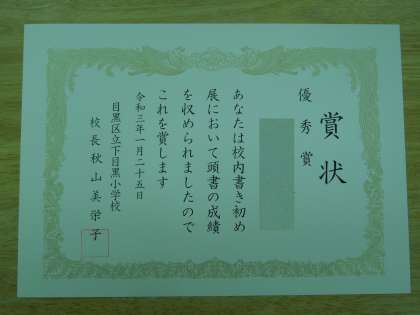 賞状
優秀賞
あなたは校内書き初め
展において頭書の成績
を収められましたので
これを賞します
令和三年一月二十五日
目黒区立下目黒小学校
校長秋山美栄子